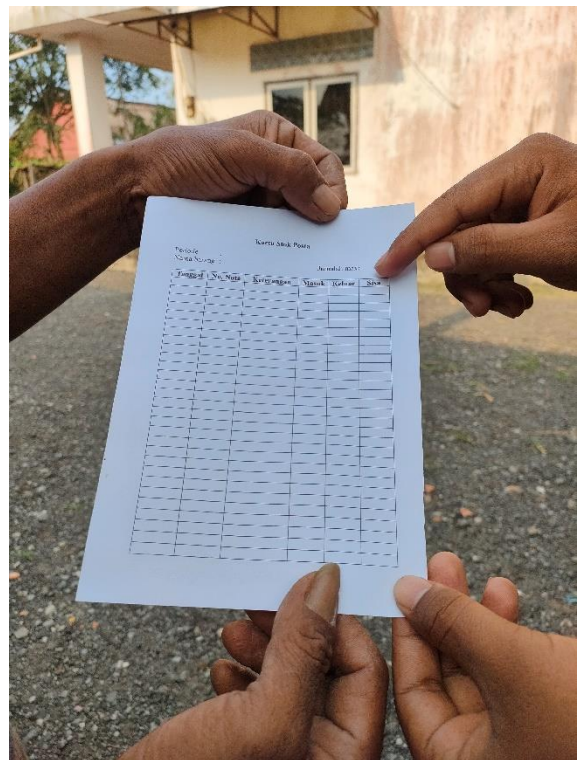 Kartu Stok Pesan
Periode
Nama Barang :
Tanggal No. Nota Keterangan Masuk Keluar Sisa